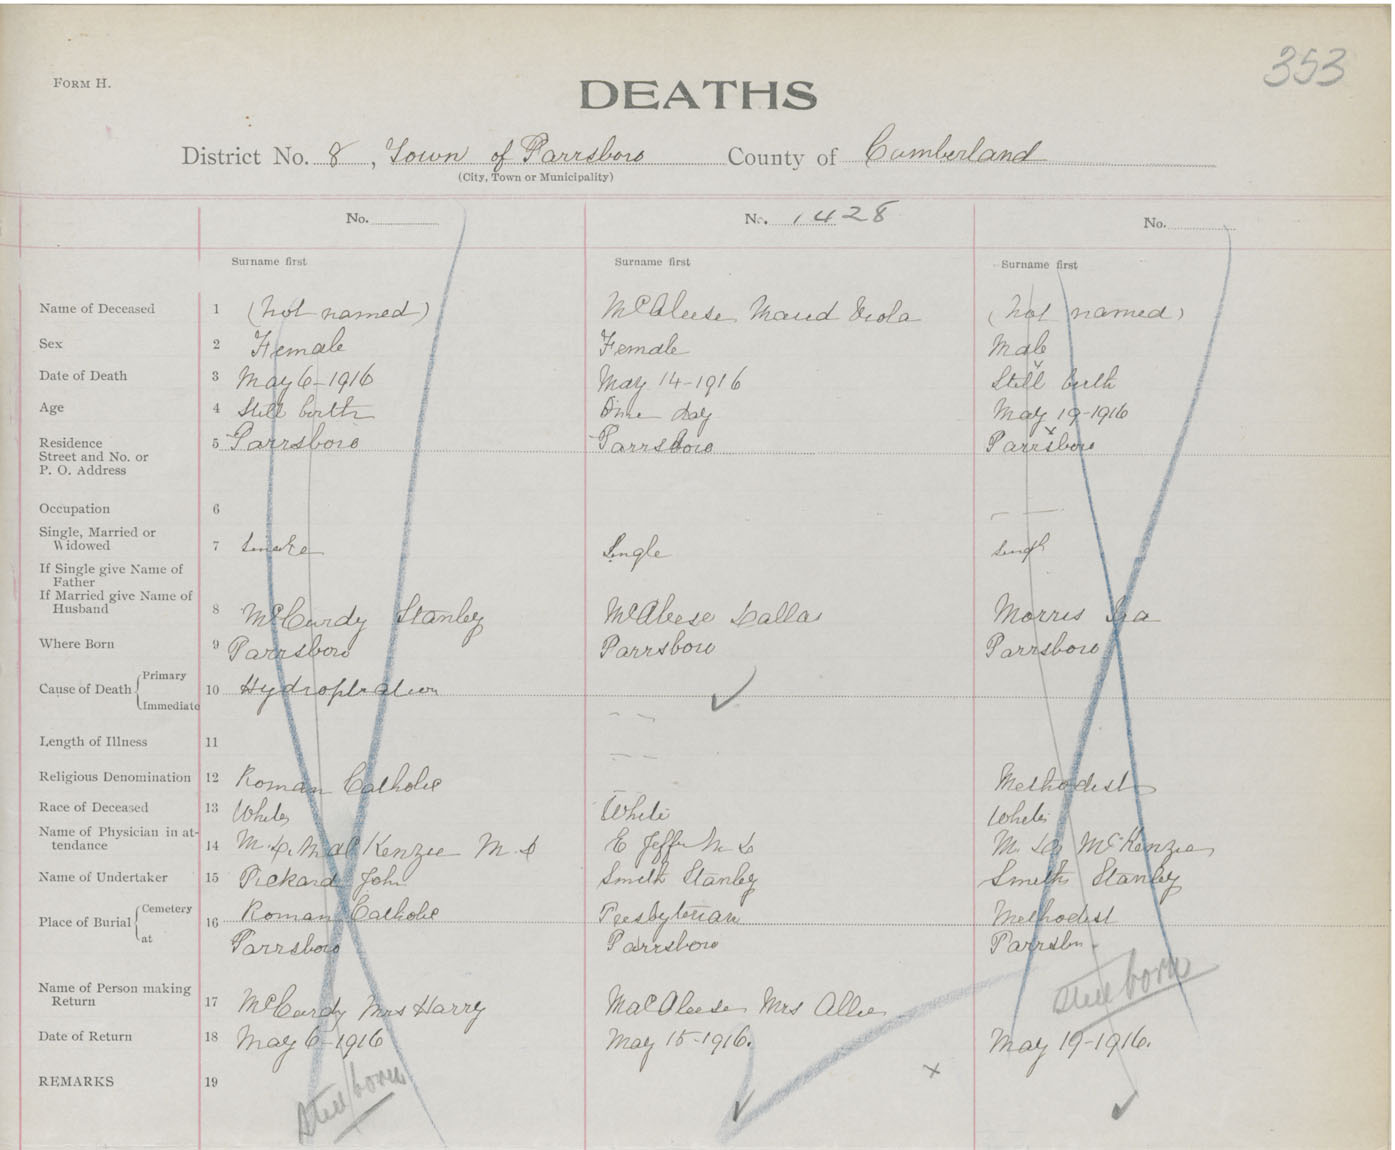 353
FORM H.
DEATHS
District No. 8, Town of Parrsboro County of Cumberland
(City, Town or Municipality)
No. No. 1428 No.
Surname first Surname first Surname first
Name of Deceased 1 (not named) McAleese Maud Viola (not named)
Sex 2 Female Female Male
Date of Death 3 May 6-1916 May 14-1916 Still birth
Age 4 Still birth One day May 19-1916
Residence 5 Parrsboro Parrsboro Parrsboro
Street and No. or
P. O. Address
Occupation 6
Single, Married or
Widowed 7 Single Single
If Single give Name of
Father
If Married give Name of
Husband 8 McCurdy Stanley McAleese Dallas Morris
Where Born 9 Parrsboro Parrsboro Parrsboro
Cause of Death { Primary
Immediate 10
Length of Illness 11
Religious Denomination 12 Roman Catholic Methodist
Race of Deceased 13 White White White
Name of Physician in at-
tendance 14 M. D. MacKenzie M D E Jeffers M D M. D. McKenzie
Name of Undertaker 15 Pickard John Smith Stanley Smith Stanley
Place of Burial { Cemetery
at 16 Roman Catholic Presbyterian Methodist
Parrsboro Parrsboro Parrsboro
Name of Person making
Return 17 McCurdy Mrs Harry MacAleese Mrs Allie
Date of Return 18 May 6-1916 May 15-1916. May 19-1916.
REMARKS 19
Still born Still born